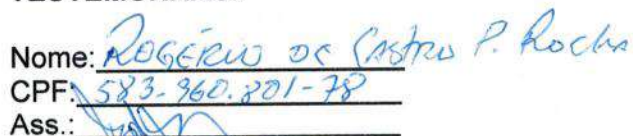 Nome: ROGÉRIO DE CASTRO P. Rocha
CPF: 583.960.801-78
Ass.: